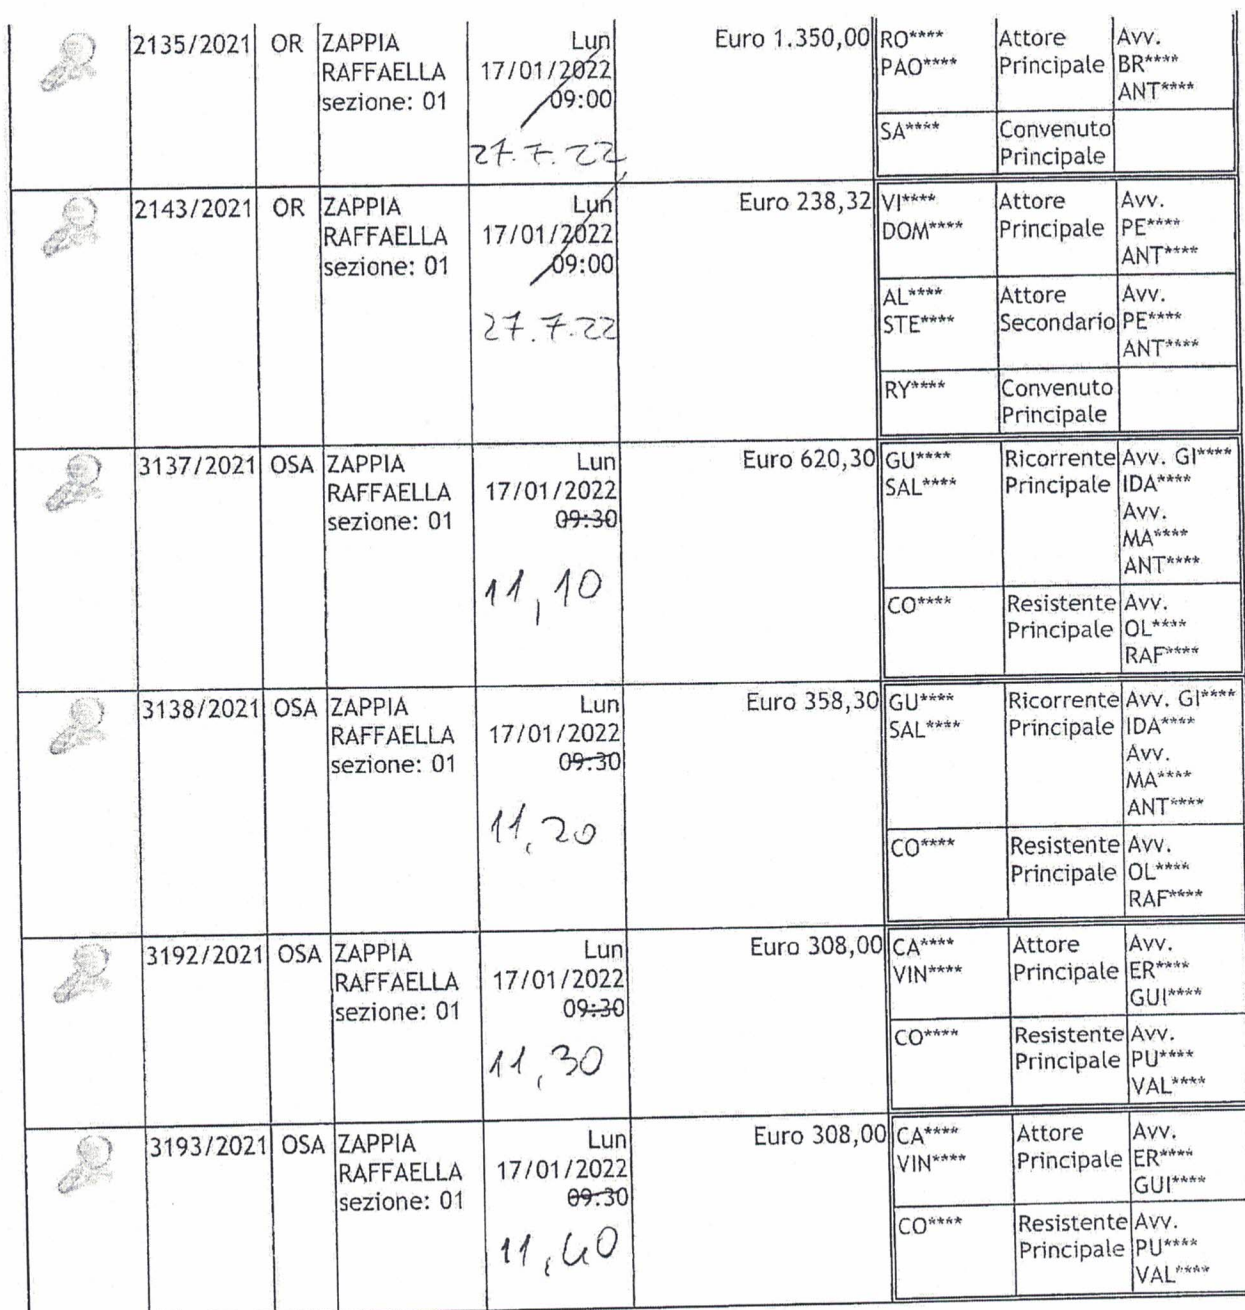 2135/2021 OR ZAPPIA RAFFAELLA sezione: 01
Lun
17/01/2022
09:00
27.7.22
Euro 1.350,00
RO**** PAO****
Attore Principale
Avv. BR**** ANT****
SA****
Convenuto Principale
2143/2021 OR ZAPPIA RAFFAELLA sezione: 01
Lun
17/01/2022
09:00
27.7.22
Euro 238,32
VI**** DOM****
Attore Principale
Avv. PE**** ANT****
AL**** STE****
Attore Secondario
Avv. PE**** ANT****
RY****
Convenuto Principale
3137/2021 OSA ZAPPIA RAFFAELLA sezione: 01
Lun
17/01/2022
09:30
11,10
Euro 620,30
GU**** SAL****
Ricorrente Principale
Avv. GI**** IDA**** Avv. MA**** ANT****
CO****
Resistente Principale
Avv. OL**** RAF****
3138/2021 OSA ZAPPIA RAFFAELLA sezione: 01
Lun
17/01/2022
09:30
11,20
Euro 358,30
GU**** SAL****
Ricorrente Principale
Avv. GI**** IDA**** Avv. MA**** ANT****
CO****
Resistente Principale
Avv. OL**** RAF****
3192/2021 OSA ZAPPIA RAFFAELLA sezione: 01
Lun
17/01/2022
09:30
11,30
Euro 308,00
CA**** VIN****
Attore Principale
Avv. ER**** GUI****
CO****
Resistente Principale
Avv. PU**** VAL****
3193/2021 OSA ZAPPIA RAFFAELLA sezione: 01
Lun
17/01/2022
09:30
11,40
Euro 308,00
CA**** VIN****
Attore Principale
Avv. ER**** GUI****
CO****
Resistente Principale
Avv. PU**** VAL****